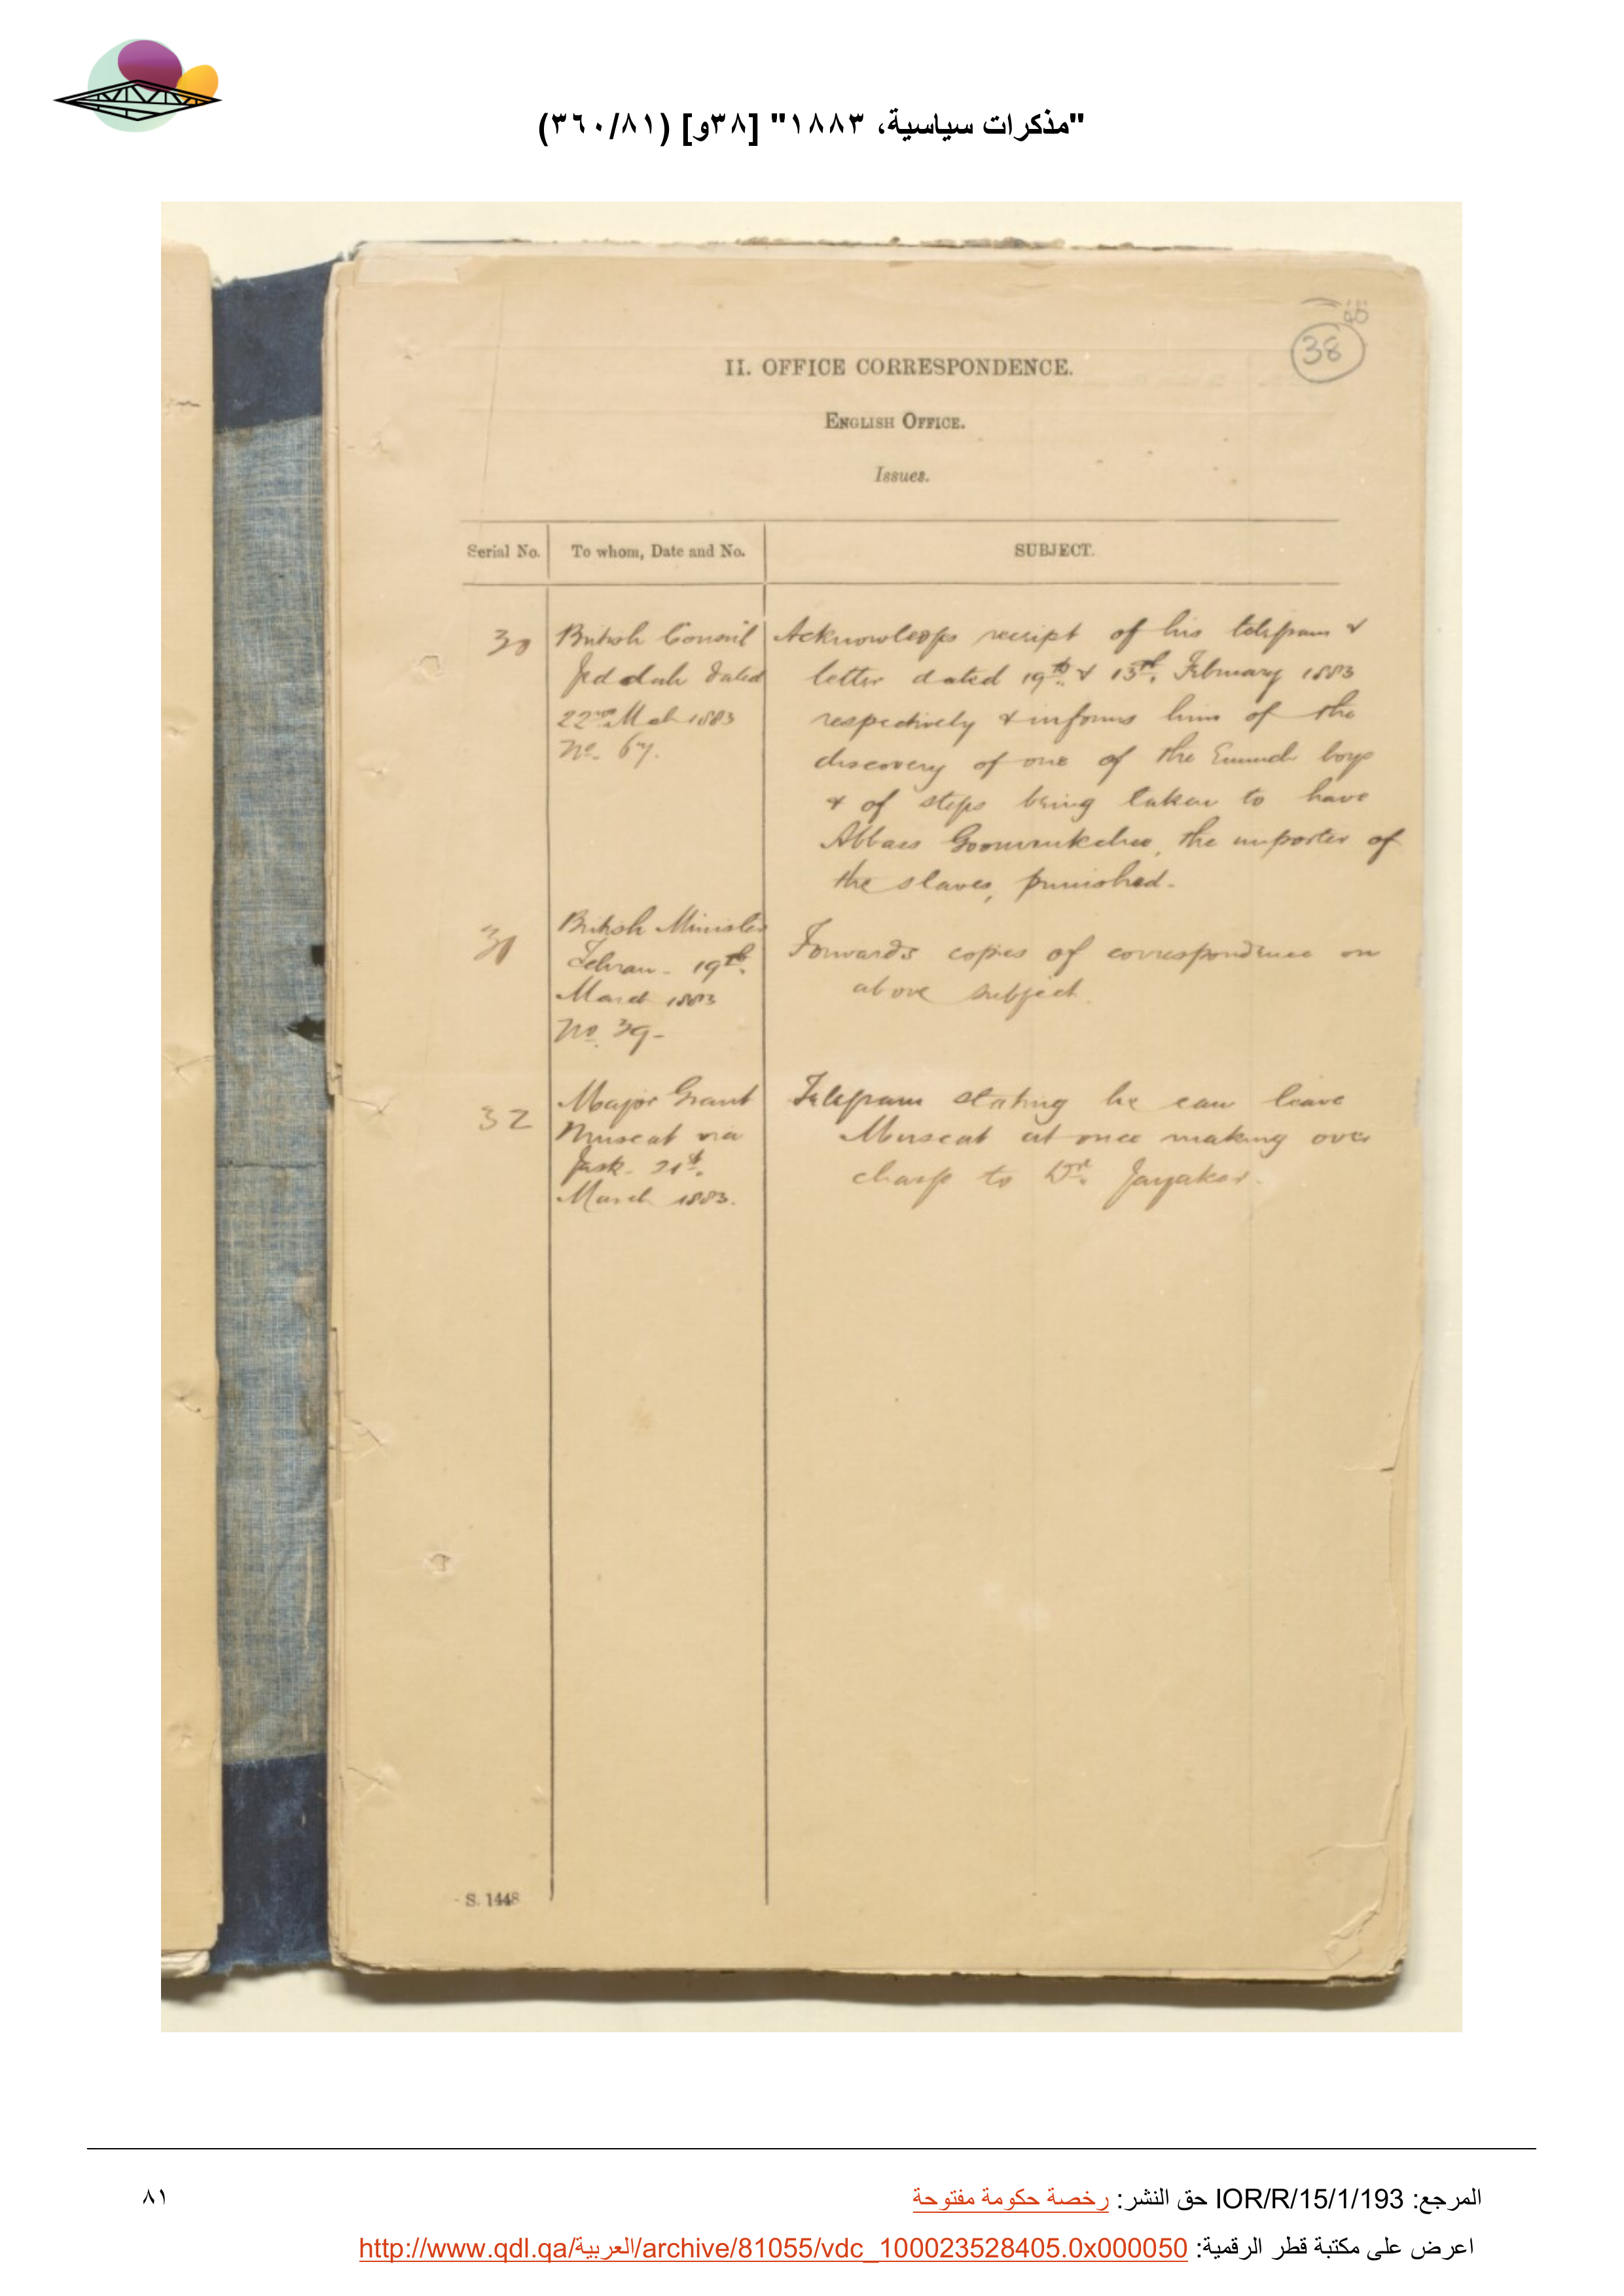 "مذكرات سياسية، ١٨٨٣" [٣٨و] (٣٦٠/٨١)
38
II. OFFICE CORRESPONDENCE.
ENGLISH OFFICE.
Issues.
Serial No. To whom, Date and No. SUBJECT.
30 British Consul Jeddah dated 22nd Mch 1883 No. 67.
Acknowledges receipt of his telegram &
letter dated 19th & 13th February 1883
respectively & informs him of the
discovery of one of the Eunuch boys
& of steps being taken to have
Abbas the importer of
the slaves, punished.
31 British Minister
Tehran - 19th
March 1883
No. 39-
Forwards copies of correspondence on
above subject.
32 Major Grant
Muscat via
Jask - 21st
March 1883.
Telegram stating he can leave
Muscat at once making over
charge to Dr. Jayakar.
S. 1448
المرجع: IOR/R/15/1/193 حق النشر: رخصة حكومة مفتوحة
٨١
اعرض على مكتبة قطر الرقمية: http://www.qdl.qa/العربية/archive/81055/vdc_100023528405.0x000050